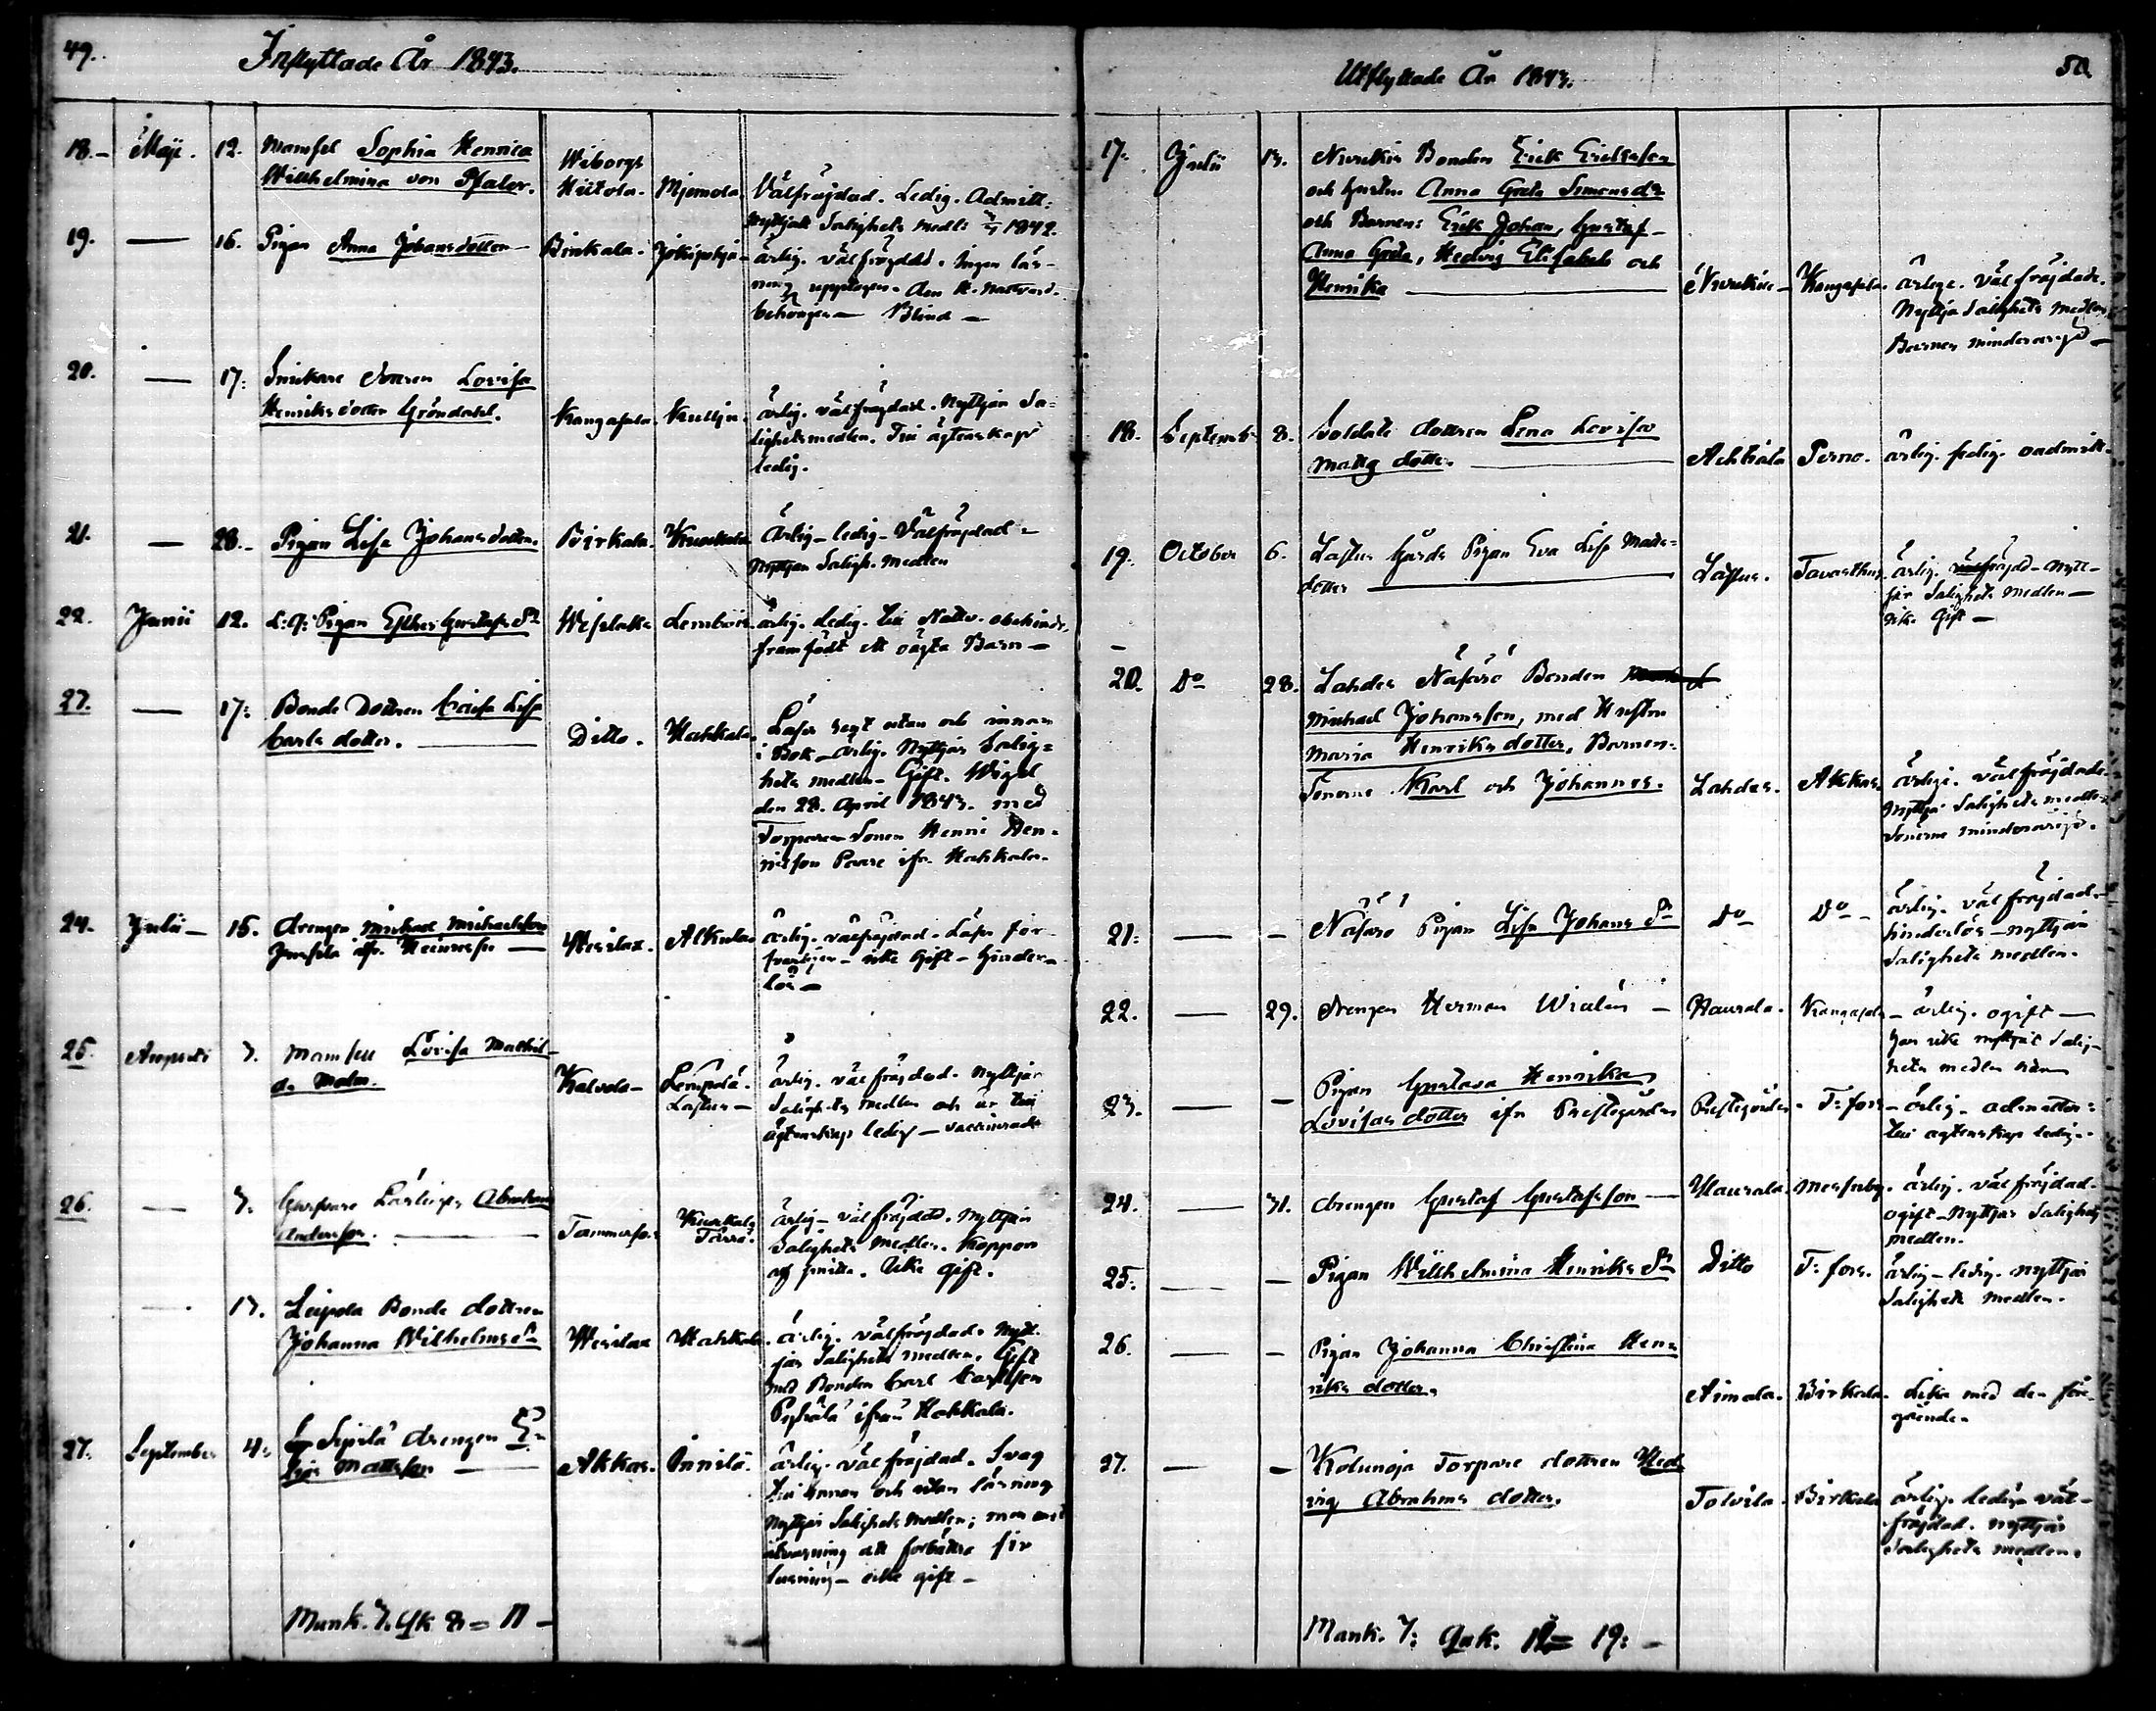 49.
Inflyttade År 1843.
18.- Maji. 12. Mamsel Sophia Henrica
Willhelmina von Pfaler.
Wiborgs
Hiitola. Mjemola.
Välfräjdad. Ledig. Admitt:
Nyttjat Salighets medl: 1842.
19. — 16. Pigan Anna Johansdotter
Birkala.
ärlig. välfräjdad. Ingen läs-
ning upptagen. Den H. Nattvard.
behörigen — Blind —
20. — 17: dottren Lovisa
Henriksdotter Gröndahl.
Kangasala.
ärlig. välfräjdad. Nyttjar Sa-
lighetsmedlen. Till ägtenskap
ledig.
21. — 28.- Pigan Lisa Johansdotter.
Birkala.
Ärlig - ledig - Välfräjdad -
Nyttjar Saligh. Medlen
22. Junii 12. Pigan Esther Gustafs Dr
ärlig. Ledig. till Nattv. obehindr.
framfödt ett oägta Barn —
23. — 17: Bonde Dottren Caisa Lisa
Carls dotter.
Ditto. Hahkala.
Läser utan och innan
i Bok - ärlig. Nyttjar Salig-
hets medlen - Gift. Wigd
den 28. April 1843. med
Torpare Sonen Henric Hen-
ricsson ifr. Hahkala.
24. Julii — 15. drengen Michael Michaelsson
ifr.
Wesilax. Alkula
ärlig. välfräjdad. Läser för-
- icke Gift - hinder-
lös —
25. Augusti 3. Mamsell Lovisa Mathil-
da Malm.
Kalvola -
ärlig. välfräjdad. Nyttjar
Salighets medlen och är till
ägtenskap ledig — vaccinerad
26. — 7. Garfvare Lärlingen Abraham
Andersson.
Tammerfors
ärlig - välfräjdad. Nyttjar
Salighets medlen. Koppor
af smitta. Icke gift.
— 13. Leipola Bonde dottren
Johanna Wilhelms dr
Wesilax Hahkala.
ärlig. välfräjdad. Nytt-
jar Salighets medlen. Gift
med Bonden Carl Carlsson
ifrån Hahkala.
27. September 4: Sipilä drengen E-
lias Mattsson
Akkas. Innilä.
ärlig. välfräjdad. Svag
till innan och utan läsning
Nyttjar Salighets medlen; men med
att förbättra sin
läsning - icke gift -
Mank. 3. Qk 8 = 11 -
50
Utflyttade År 1843.
17: Julii 13. Nurckis Bonden Erik Ericksson
och hustru Anna Greta Simonsdr
och Barnen: Erik Johan, Gustaf -
Anna Greta, Hedvig Elisabet och
Henrika
Kangasala.
ärlige. välfräjdade.
Nyttja Salighets medlen
Barnen minderåriga —
18. Septemb. 8. Soldats dottren Lena Lovisa
Matts dotter.
Ahtiala Perno. ärlig. ledig. oadmitt.
19. October 6. Gårds Pigan Eva Lisa Mats-
dotter
Tavasthus.
ärlig. välfräjd - nytt-
jar Salighets medlen —
icke Gift —
20. Do 28. Lahdes Näfärö Bonden
Michael Johansson, med Hustru
Maria Henriks dotter, Barnen:
Sönerne Karl och Johannes.
Lahdes. Akkas.
ärlige. välfräjdade.
Nyttja Salighets medlen
Sönerne minderåriga.
21: — - Näfärö Pigan Lisa Johans Dr
Do Do -
ärlig. välfräjdad -
hinderlös - nyttjar
Salighets medlen.
22. — 29. drengen Herman Widlen -
Haurala. Kangasala
- ärlig. ogift —
har icke nyttjat Salig-
hets medlen här
23. — - Pigan Gustava Henrika
Lovisas dotter ifr Prestegården
Prestgården - T: fors
- ärlig - admitter:
till ägtenskap ledig.
24. — 31. drengen Gustaf Gustafsson —
Haurala. Messuby.
ärlig. välfräjdad.
ogift - Nyttjar Salighets
medlen.
25: — - Pigan Willhelmina Henriks Dr
Ditto T: fors.
ärlig - ledig. nyttjar
Salighets medlen.
26. — - Pigan Johanna Christina Hen-
riks dotter.
Aimala. Birkala. Lika med den före-
gående.
27. — - Kolunoja Torpare dottren Hed-
vig Abrahams dotter.
Tolvila. Birkala
ärlig. ledig. väl-
fräjdad. nyttjar
Salighets medlen.
Mank. 7: Qnk. 12 = 19: -